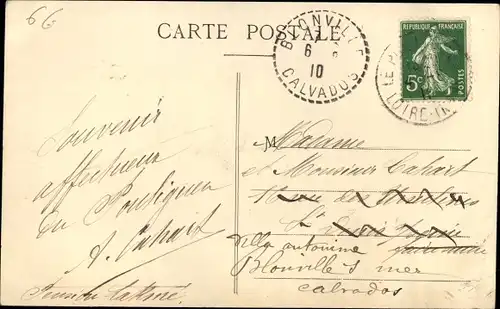 66
CARTE POSTALE
BLONVILLE
6
10
CALVADOS
REPUBLIQUE FRANÇAISE
5c
POSTES
LOIRE-IN
Souvenir
affectueux
du Pouliguen
A. Cahait
M Madame
et Monsieur Cahait
Rue des
St
villa antonine
Blonville s mer
Calvados